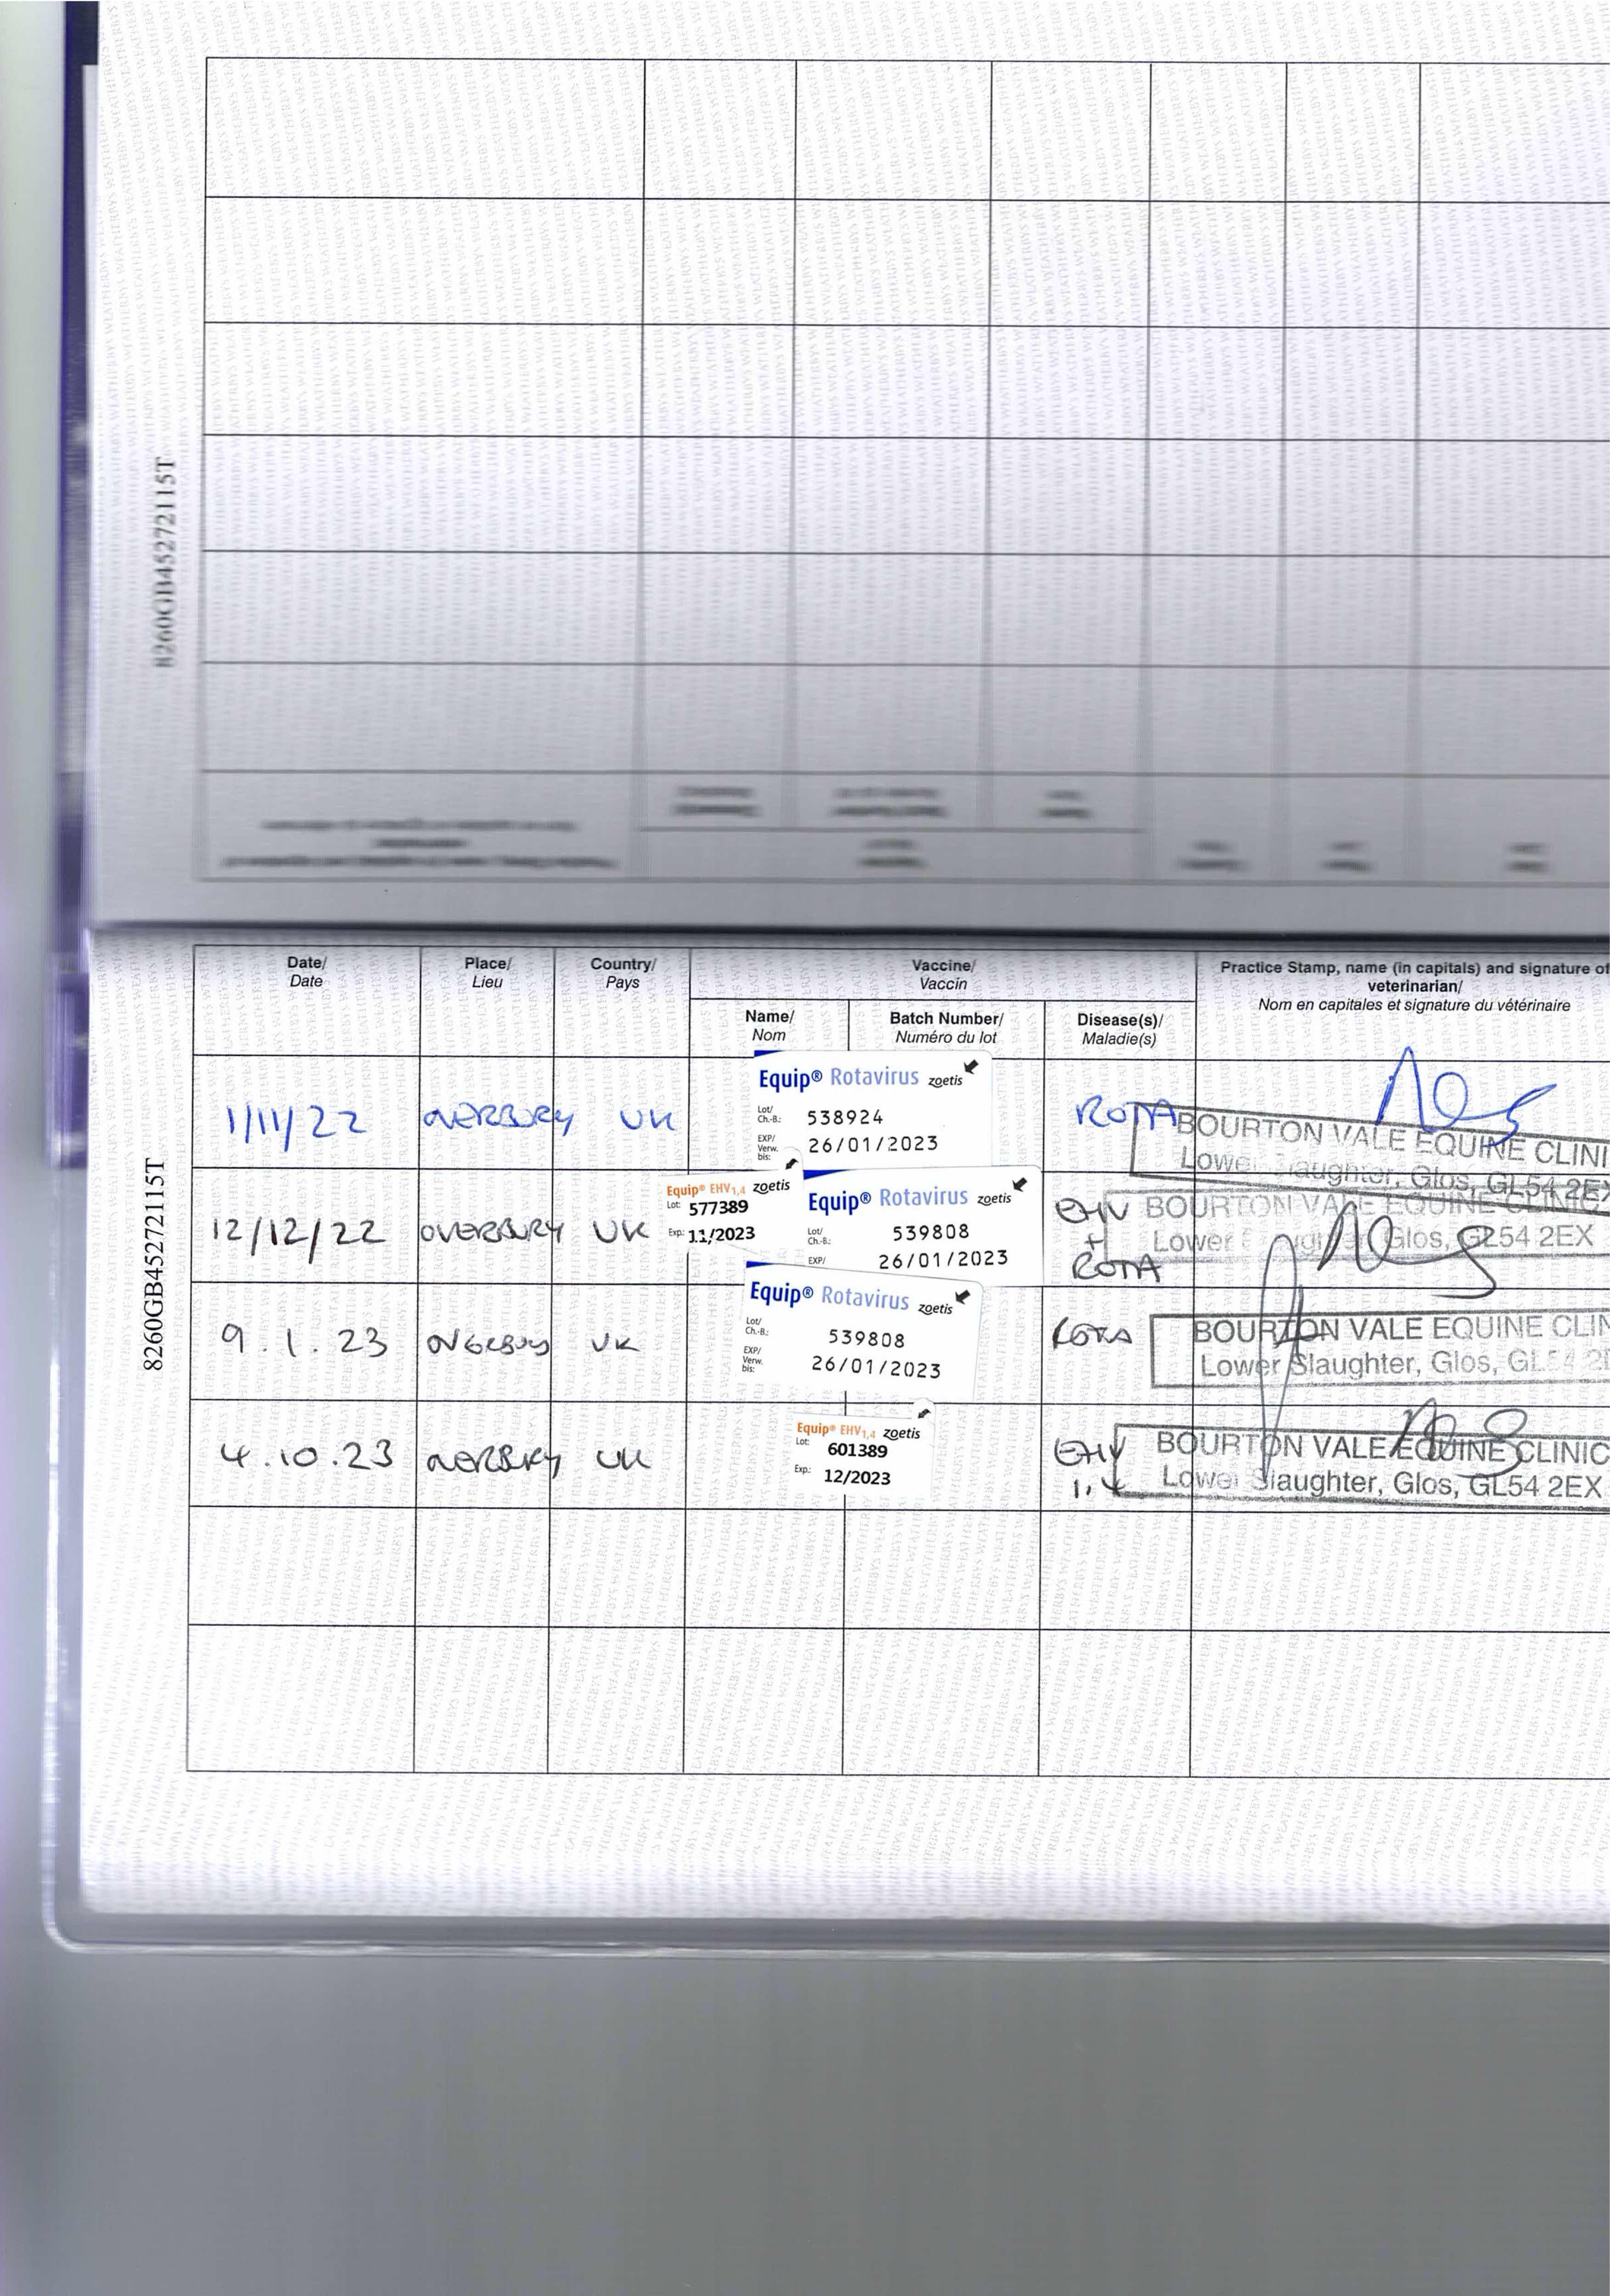 8260GB45272115T
Date/ Place/ Country/ Vaccine/ Practice Stamp, name (in capitals) and signature of
Date Lieu Pays Vaccin veterinarian/
Nom en capitales et signature du vétérinaire
Name/ Batch Number/ Disease(s)/
Nom Numéro du lot Maladie(s)
1/11/22 OVERBURY UK
Equip® Rotavirus zoetis
Lot/ Ch.-B.: 538924
EXP/ Verw. bis: 26/01/2023
ROTA
BOURTON VALE EQUINE CLINI
Lower Slaughter, Glos, GL54 2EX
12/12/22 OVERBURY UK
Equip® EHV1,4 zoetis
Lot: 577389
Exp: 11/2023
Equip® Rotavirus zoetis
Lot/ Ch.-B.: 539808
EXP/ 26/01/2023
EHV
+
ROTA
BOURTON VALE EQUINE CLINIC
Lower Slaughter, Glos, GL54 2EX
9.1.23 OVERBURY UK
Equip® Rotavirus zoetis
Lot/ Ch.-B.: 539808
EXP/ Verw. bis: 26/01/2023
ROTA
BOURTON VALE EQUINE CLIN
Lower Slaughter, Glos, GL54 2E
4.10.23 OVERBURY UK
Equip® EHV1,4 zoetis
Lot: 601389
Exp.: 12/2023
EHV
1,4
BOURTON VALE EQUINE CLINIC
Lower Slaughter, Glos, GL54 2EX
8260GB45272115T